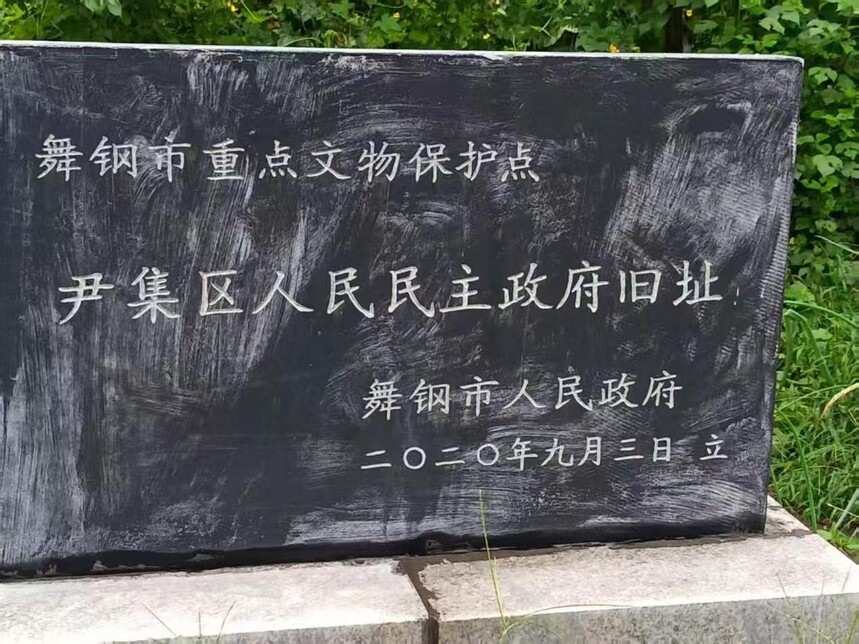 舞钢市重点文物保护点
尹集区人民民主政府旧址
舞钢市人民政府
二〇二〇年九月三日 立